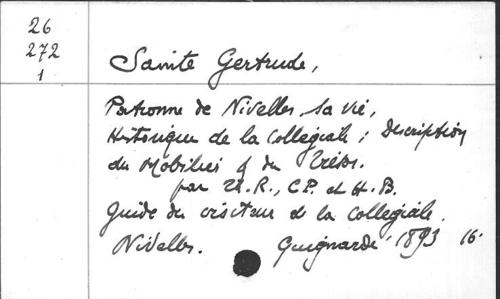 26
272
1
Sainte Gertrude,
Patronne de Nivelles, sa vie,
Historique de la Collégiale; Description
du Mobilier & du Trésor.
par U.R., C.P. et H.B.
Guide du visiteur de la Collégiale.
Nivelles. Guignardé 1893 16°